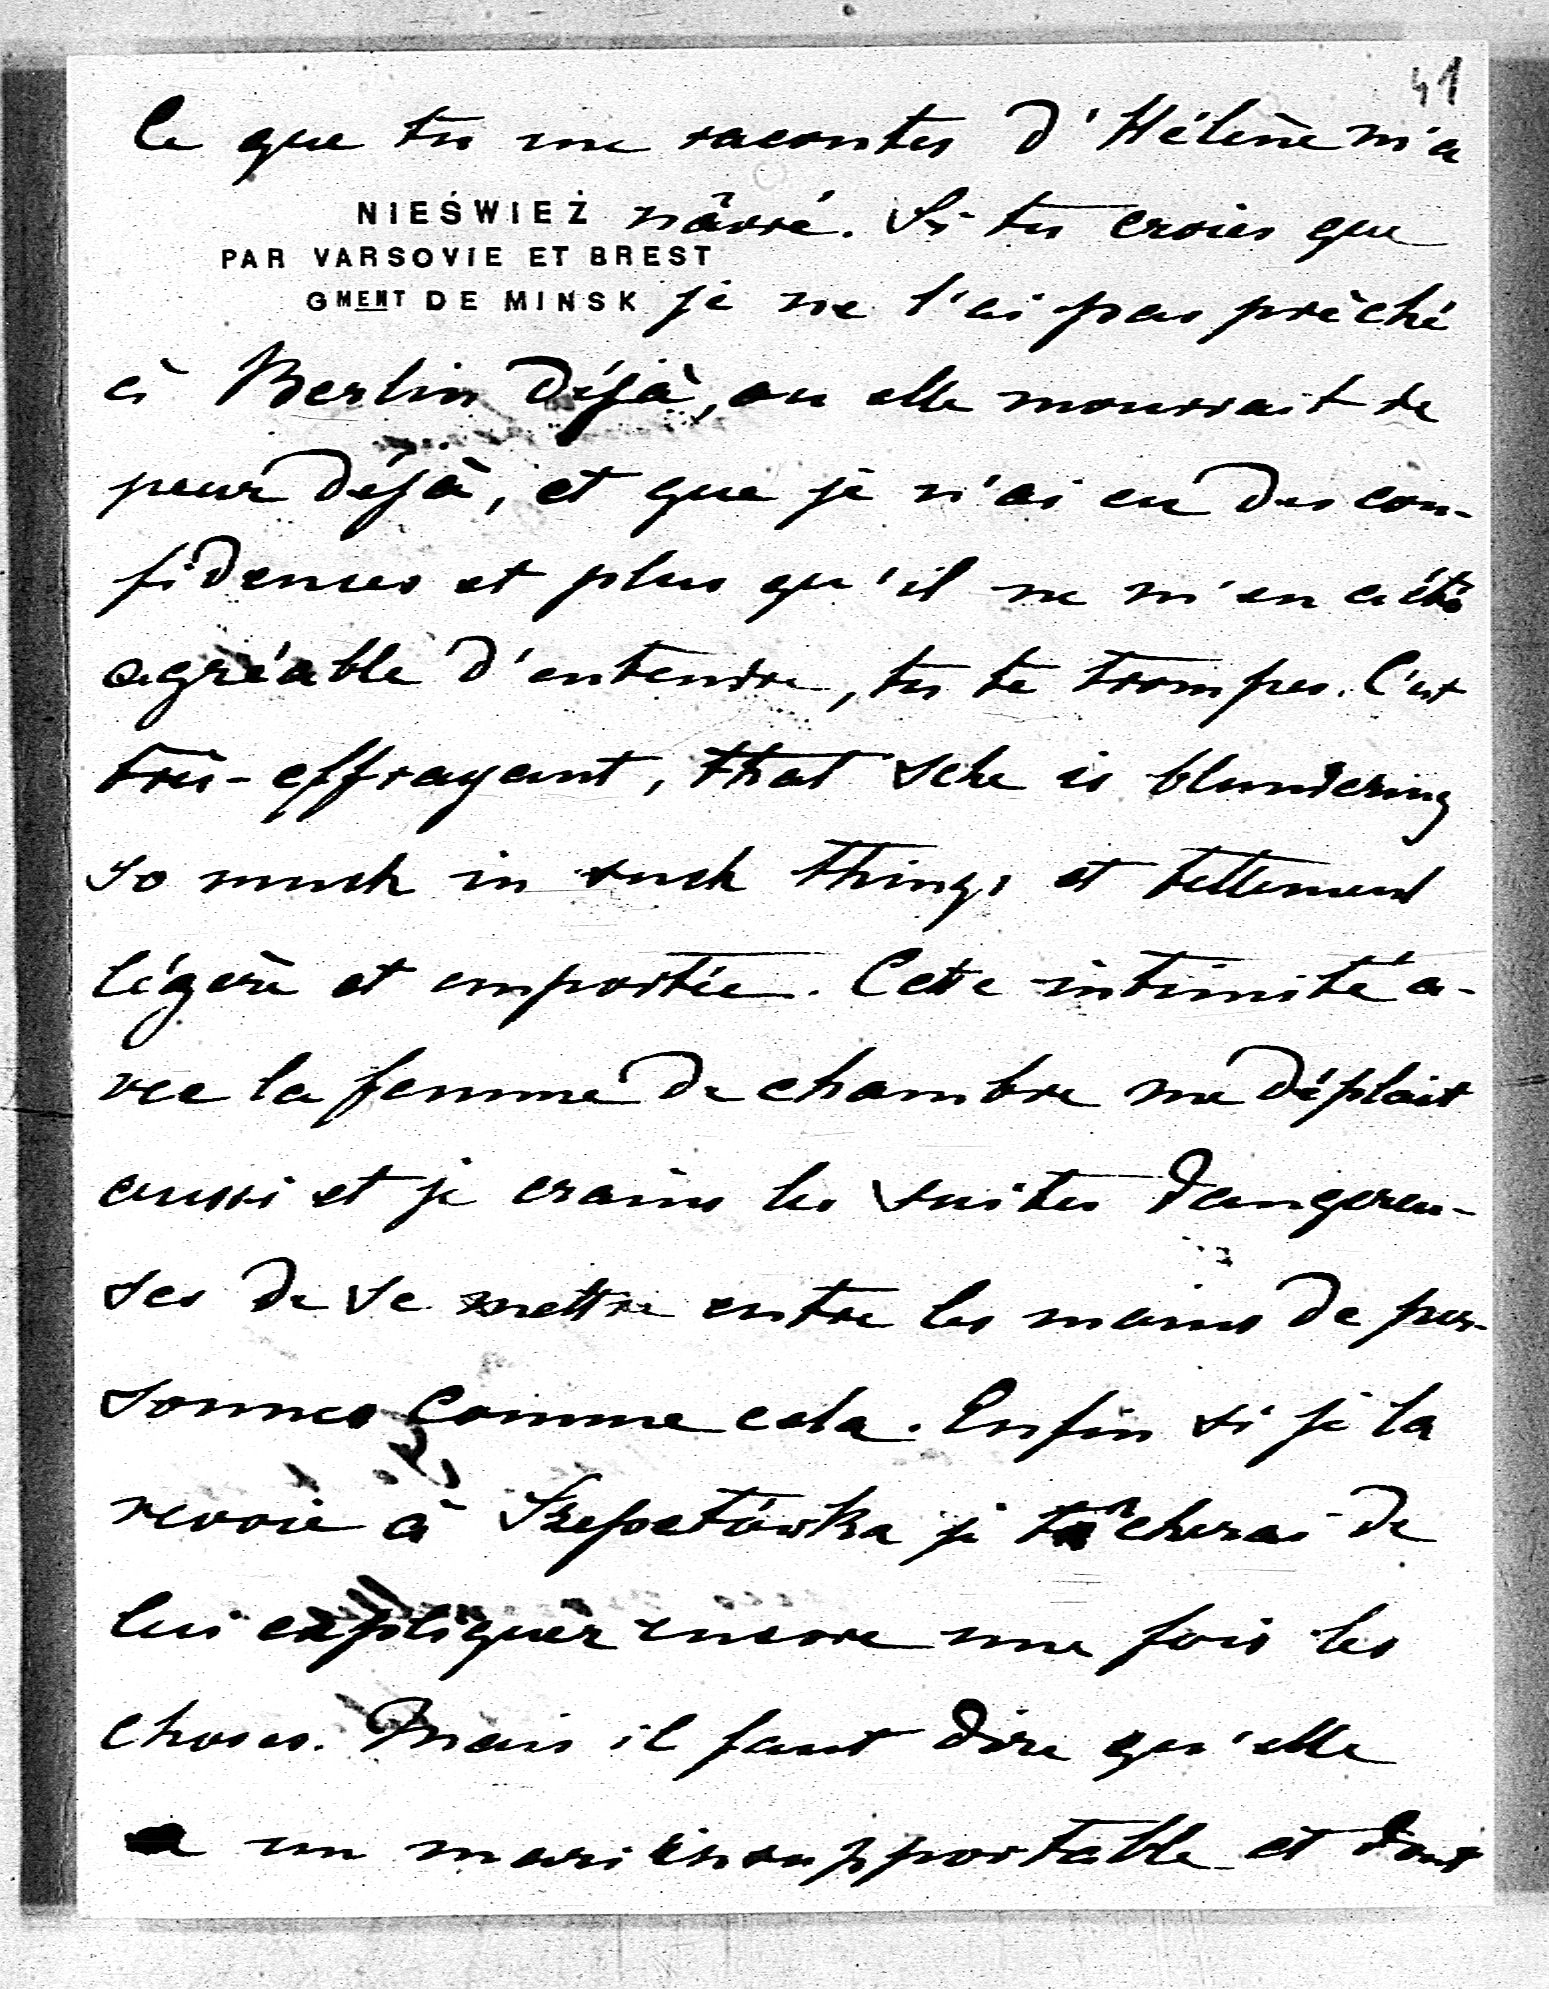 41
Ce que tu me racontes d'Hélène m'a
NIEŚWIEŻ nâvré. Si tu crois que
PAR VARSOVIE ET BREST
GMENT DE MINSK je ne l'ai pas prêché
à Berlin déjà, ou elle mourrait de
peur déjà, et que je n'ai eu des con-
fidences et plus qu'il ne m'en a été
agréable d'entendre, tu te trompes. C'est
très-effrayant, that sche is blundering
so much in such things et tellement
légère et emportée. Cette intimité a-
vec la femme de chambre me déplait
aussi et je crains les suites dangereu-
ses de se mettre entre les mains de per-
sonnes comme cela. Enfin si je la
revoie à Szepetówka je tâcherai de
lui expliquer encore une fois les
choses. Mais il faut dire qu'elle
a un mari insupportable et dont